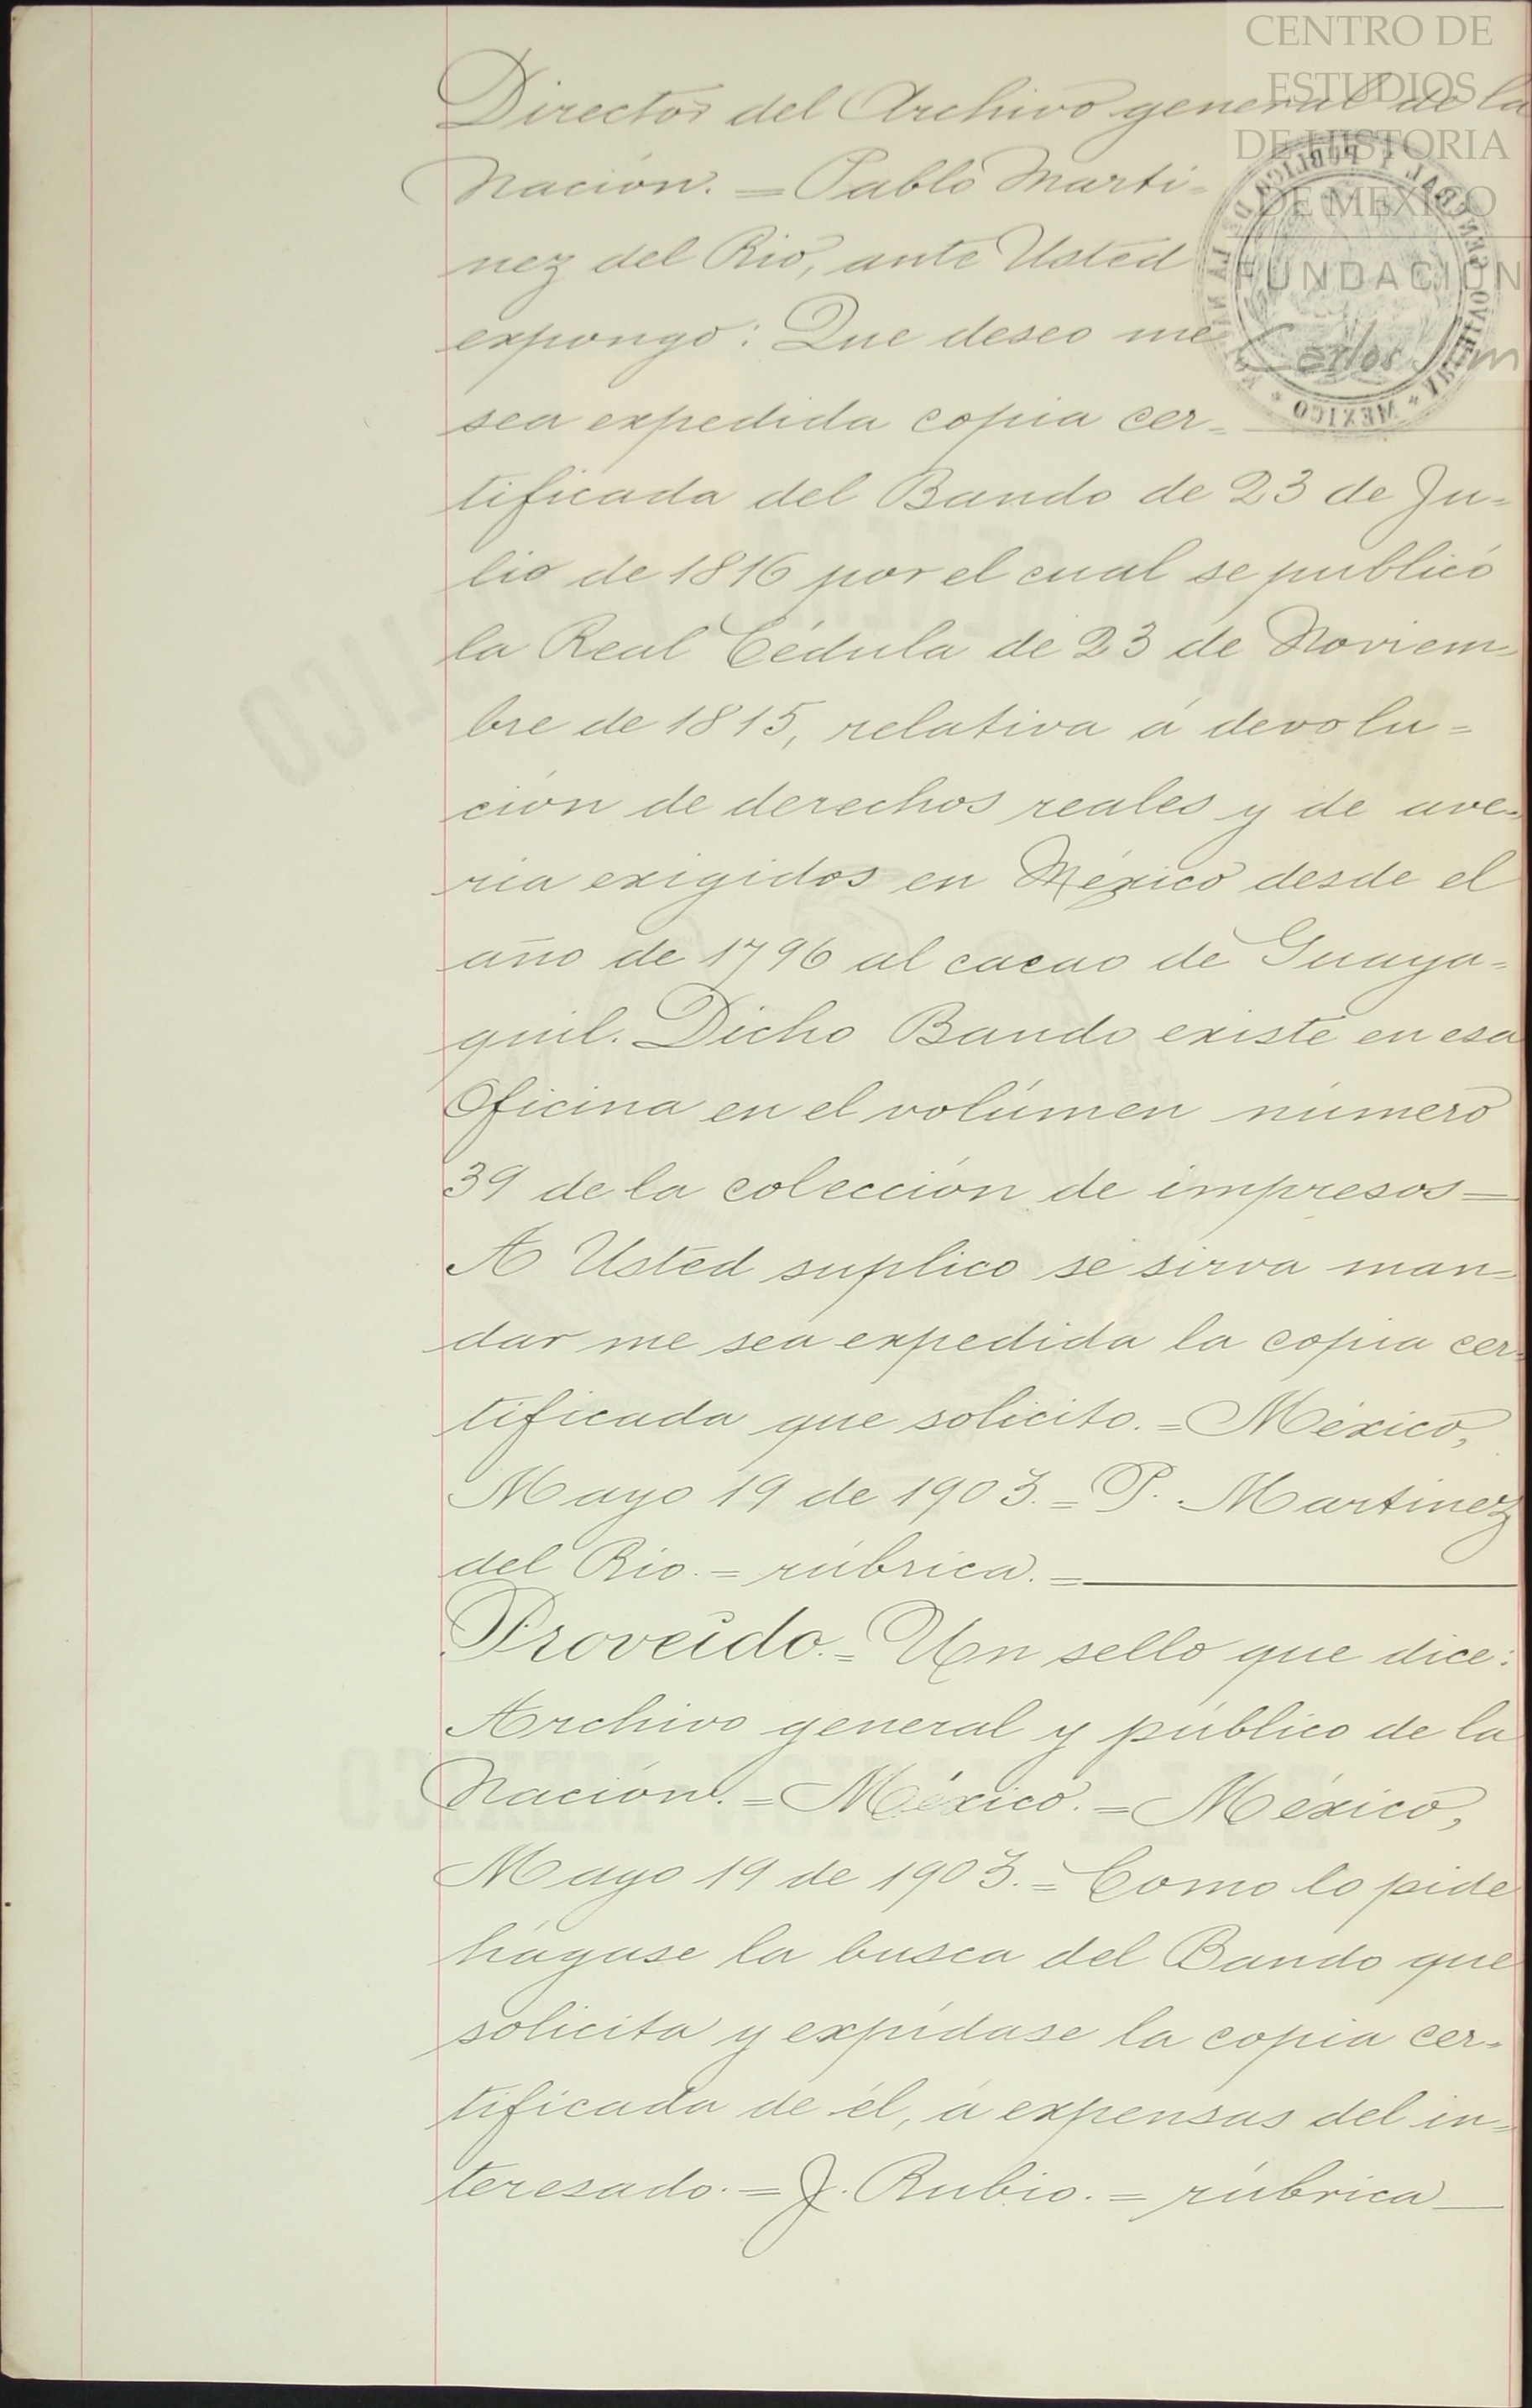 CENTRO DE
ESTUDIOS
DE HISTORIA
DE MEXICO
FUNDACION
Carlos Slim
Director del Archivo general de la
Nacion. = Pablo Marti-
nez del Rio, ante Usted
expongo: Que deseo me
sea expedida copia cer=
tificada del Bando de 23 de Ju=
lio de 1816 por el cual se publicó
la Real Cédula de 23 de Noviem=
bre de 1815, relativa á devolu=
ción de derechos reales y de ave=
ria exigidos en México desde el
año de 1796 al cacao de Guaya=
quil. Dicho Bando existe en esa
Oficina en el volúmen número
39 de la colección de impresos=
A Usted suplico se sirva man=
dar me sea expedida la copia cer=
tificada que solicito. = México,
Mayo 19 de 1903. = P. Martinez
del Rio. = rúbrica. =
Proveido. = Un sello que dice:
Archivo general y público de la
Nación. = México. = México,
Mayo 19 de 1903. = Como lo pide
hágase la busca del Bando que
solicita y expídase la copia cer=
tificada de él, á expensas del in=
teresado. = J. Rubio. = rúbrica